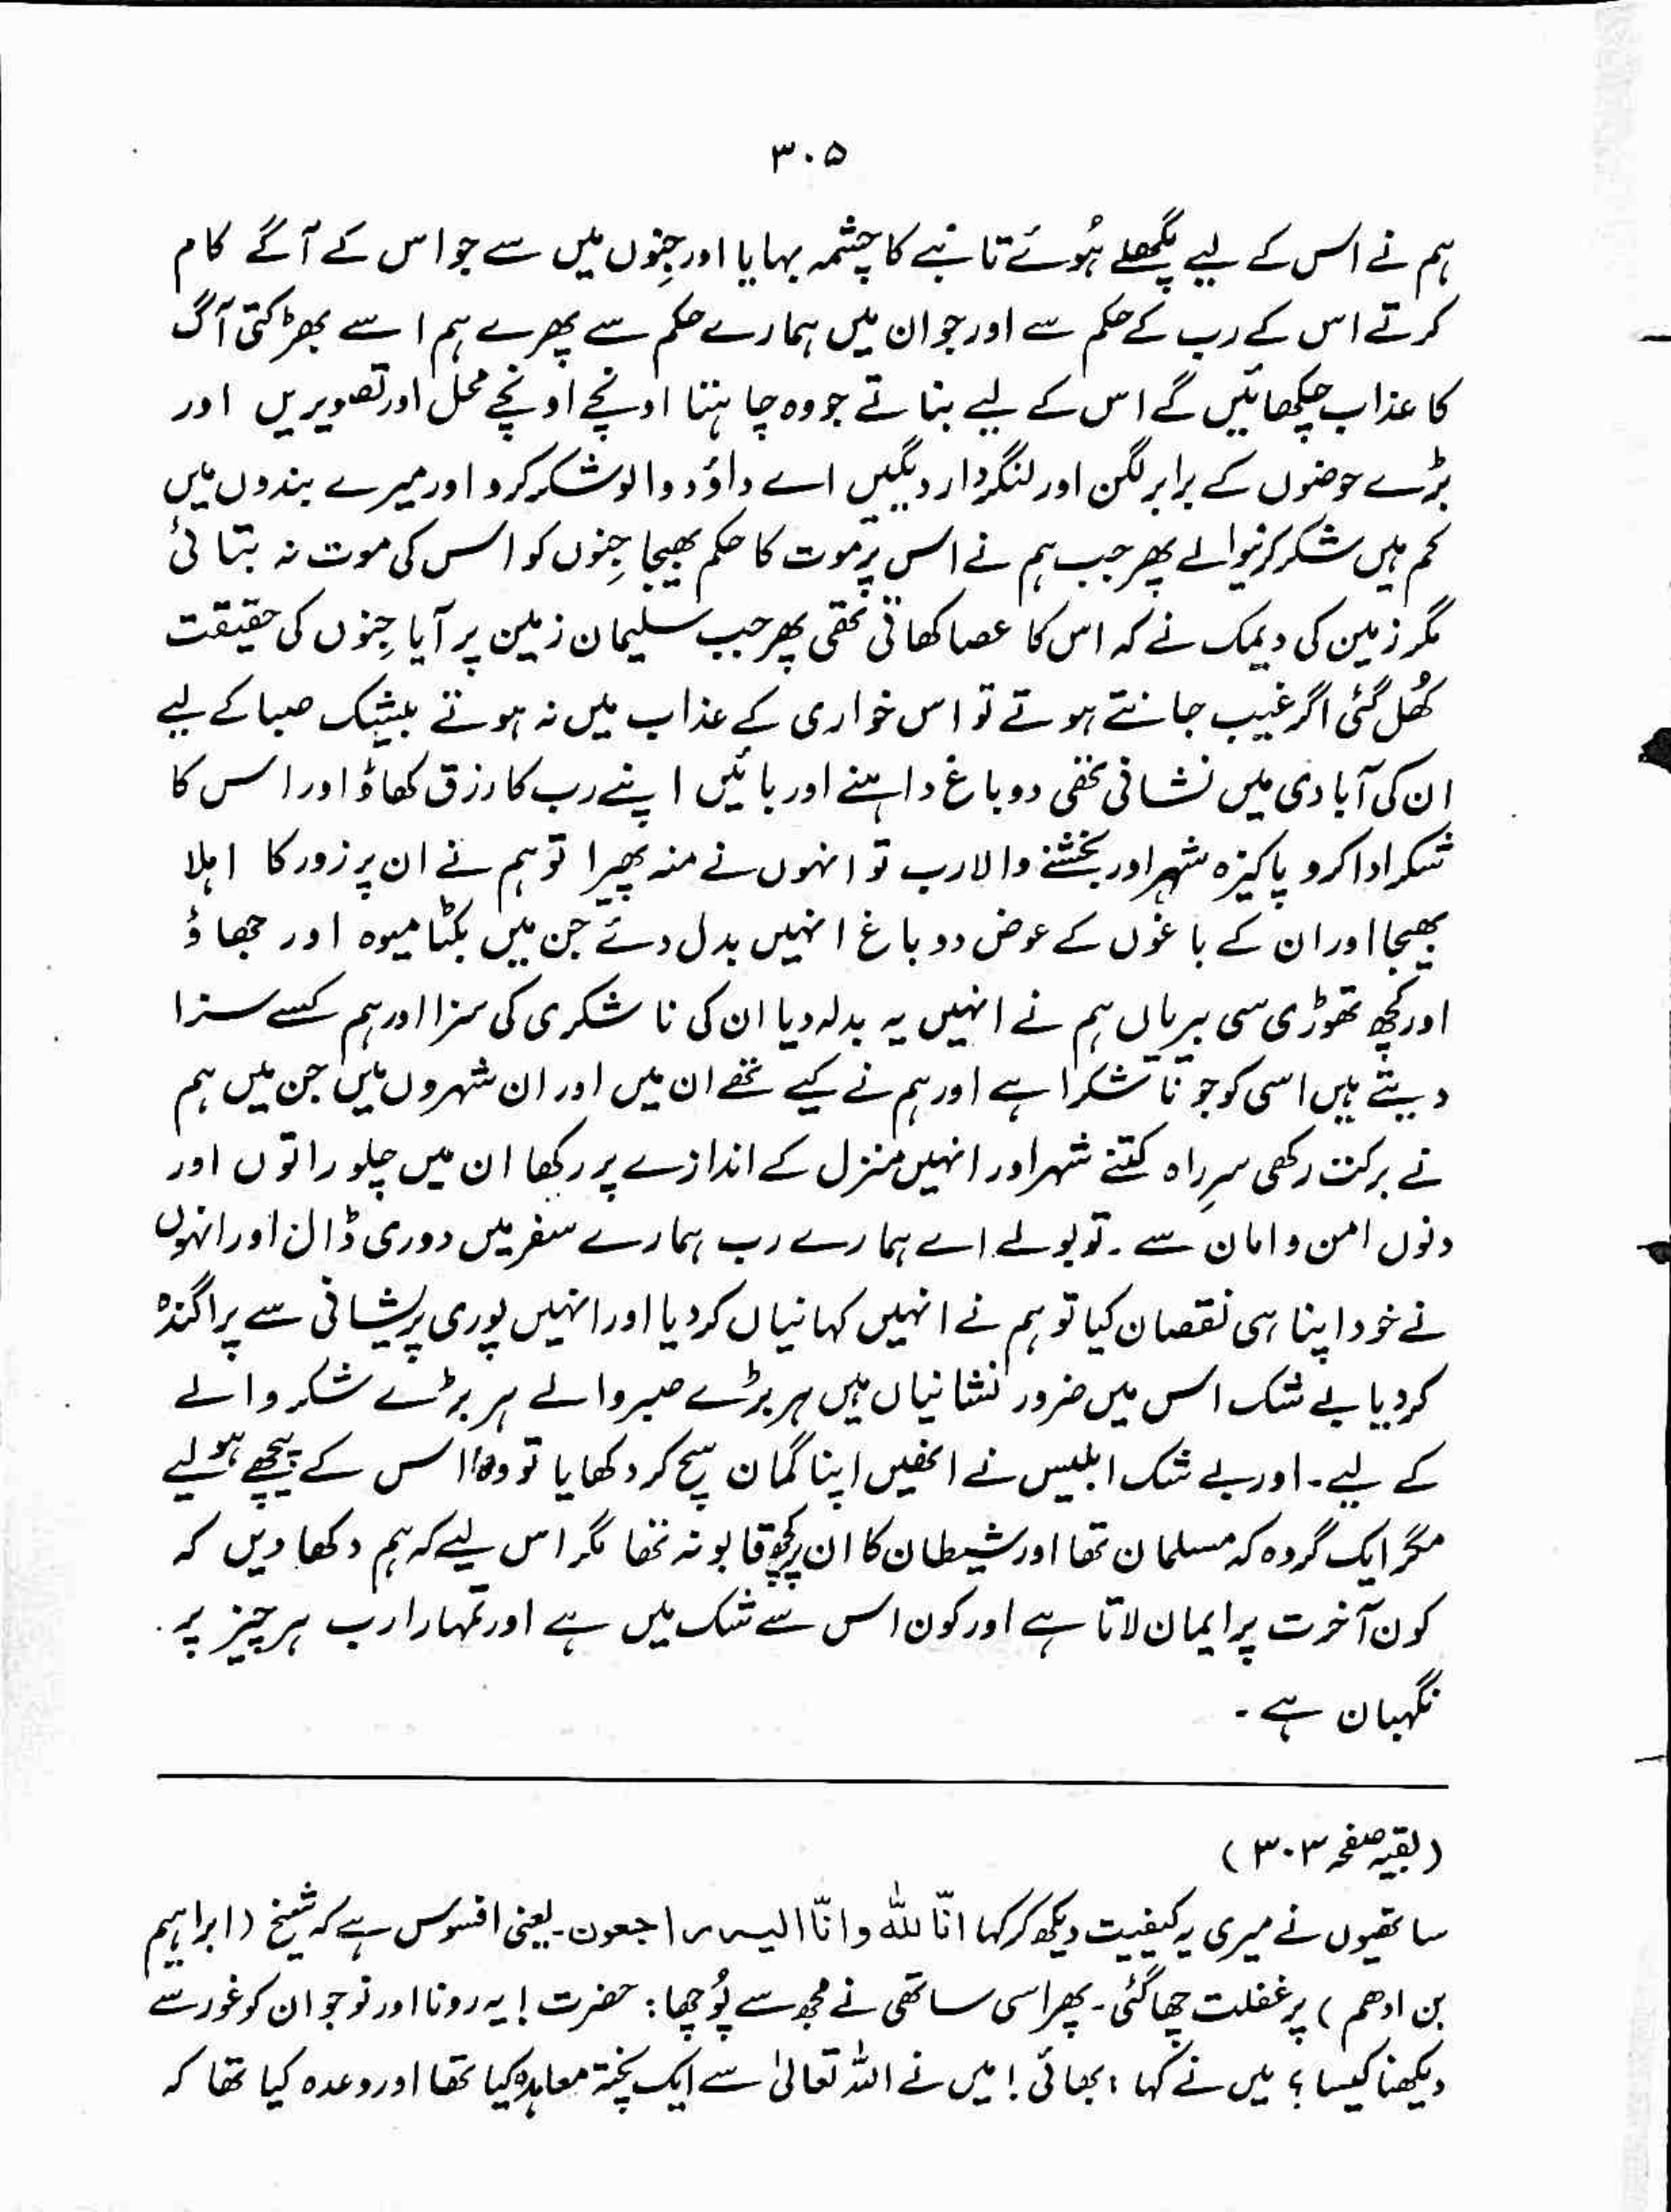 ۳۰۵
ہم نے اس کے لیے پگھلے ہُوئے تانبے کا چشمہ بہایا اور جِنوں میں سے جو اس کے آگے کام
کرتے اس کے رب کے حکم سے اور جو ان میں ہمارے حکم سے پھرے ہم اسے بھڑکتی آگ
کا عذاب چکھائیں گے اس کے لیے بناتے جو وہ چاہتا اونچے اونچے محل اور تصویریں اور
بڑے حوضوں کے برابر لگن اور لنگردار دیگیں اے داؤد والو شکر کرو اور میرے بندوں میں
کم ہیں شکر کرنیوالے پھر جب ہم نے اس پر موت کا حکم بھیجا جِنوں کو اس کی موت نہ بتائی
مگر زمین کی دیمک نے کہ اس کا عصا کھاتی تھی پھر جب سلیمان زمین پر آیا جِنوں کی حقیقت
کُھل گئی اگر غیب جانتے ہوتے تو اس خواری کے عذاب میں نہ ہوتے بیشک صبا کے لیے
ان کی آبادی میں نشانی تھی دو باغ داہنے اور بائیں اپنے رب کا رزق کھاؤ اور اس کا
شکر ادا کرو پاکیزہ شہر اور بخشنے والا رب تو انہوں نے منہ پھیرا تو ہم نے ان پر زور کا اہلا
بھیجا اور ان کے باغوں کے عوض دو باغ انہیں بدل دئے جن میں بکٹا میوہ اور جھاؤ
اور کچھ تھوڑی سی بیریاں ہم نے انہیں یہ بدلہ دیا ان کی ناشکری کی سزا اور ہم کسے سزا
دیتے ہیں اسی کو جو ناشکرا ہے اور ہم نے کیے تھے ان میں اور ان شہروں میں جن میں ہم
نے برکت رکھی سرِراہ کتنے شہر اور انہیں منزل کے اندازے پر رکھا ان میں چلو راتوں اور
دنوں امن و امان سے ۔ تو بولے اے ہمارے رب ہمارے سفر میں دوری ڈال اور انہوں
نے خود اپنا ہی نقصان کیا تو ہم نے انہیں کہانیاں کر دیا اور انہیں پوری پریشانی سے پراگندہ
کر دیا بے شک اس میں ضرور نشانیاں ہیں ہر بڑے صبر والے ہر بڑے شکر والے
کے لیے۔ اور بے شک ابلیس نے انھیں اپنا گمان سچ کر دکھایا تو وہ اس کے پیچھے ہو لیے
مگر ایک گروہ کہ مسلمان تھا اور شیطان کا ان پر کچھ قابو نہ تھا مگر اس لیے کہ ہم دکھا دیں کہ
کون آخرت پر ایمان لاتا ہے اور کون اس سے شک میں ہے اور تمہارا رب ہر چیز پر
نگہبان ہے ۔
(بقیہ صفحہ ۳۰۳)
ساتھیوں نے میری یہ کیفیت دیکھ کر کہا انّا للّٰہ وانّا الیہ راجعون۔ یعنی افسوس ہے کہ شیخ (ابراہیم
بن ادھم) پر غفلت چھا گئی۔ پھر اسی ساتھی نے مجھ سے پُوچھا: حضرت! یہ رونا اور نوجوان کو غور سے
دیکھنا کیسا؟ میں نے کہا : بھائی! میں نے اللہ تعالیٰ سے ایک پختہ معاہدہ کیا تھا اور وعدہ کیا تھا کہ